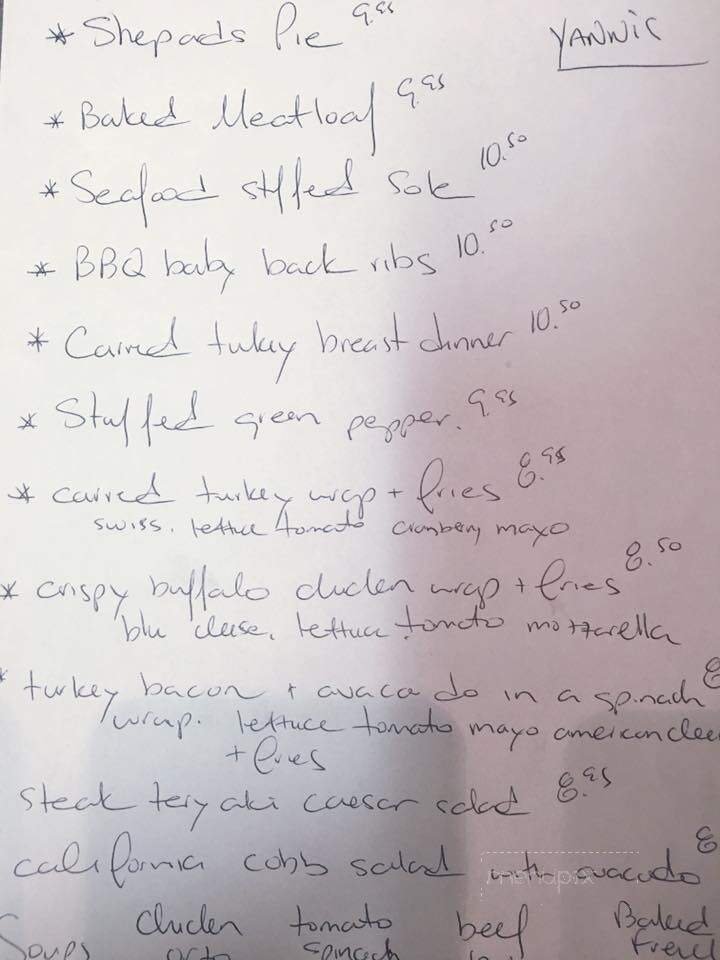 * Shepads Pie 9.95
YANNIC
* Baked Meatloaf 9.95
* Seafood stffed Sole 10.50
* BBQ baby back ribs 10.50
* Carved tukey breast dinner 10.50
* Stuffed green pepper. 9.95
* carved turkey wrap + fries 8.95
swiss. lettuce tomato cranberry mayo
* crispy buffalo chicken wrap + fries 8.50
blu cheese, lettuce tomato mozzarella
* turkey bacon + avaca do in a spinach 8
wrap. lettuce tomato mayo american chee
+ fries
steak tery aki caesar salad 8.95
california cobb salad with avacado 8
menupix
chicken tomato beef Baked
Soups orzo spinach French